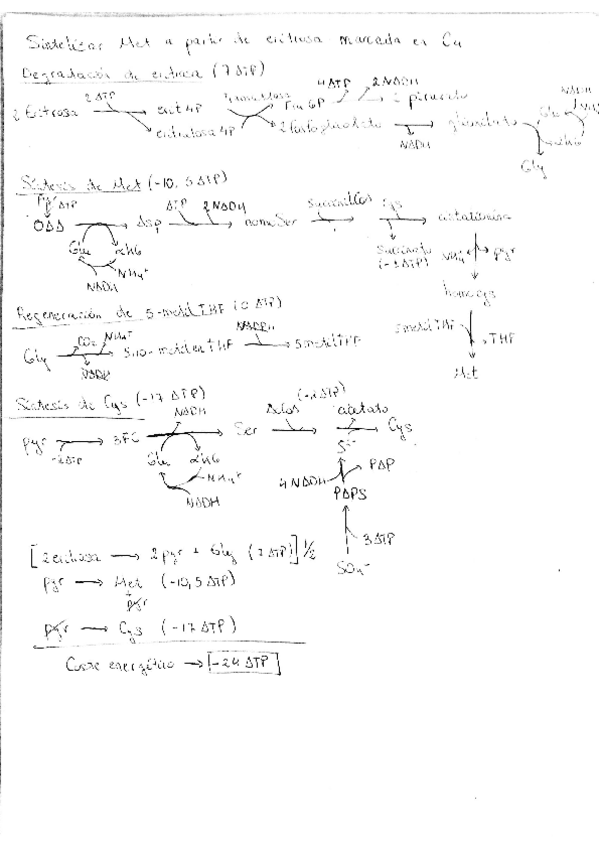 Sintetizar Met a partir de eritrosa marcada en C4
Degradación de eritrosa (7 ATP)
2 Eritrosa 2 ATP erit 4P Fru 6P 4 ATP 2 NADH 2 piruvato
eritrulosa 4P 2 fosfoglicolato NADH glioxilato Glu NADH
Gly
Síntesis de Met (-10,5 ATP)
Pyr ATP
OAA Asp ATP 2 NADH homoSer SuccinilCoA Cys cistationina
Glu αKG NH4+ NADH Succinato (-1 ATP) NH4+ pyr
homocys
Regeneración de 5-metil THF (0 ATP)
Gly CO2 NH4+ NADH 5,10-metilen THF NADPH 5 metil THF
5 metil THF THF
Met
Síntesis de Cys (-17 ATP)
pyr -2 ATP 3PG NADH Ser AcCoA (-2 ATP) acetato Cys
Glu αKG NH4+ NADH
S2-
4 NADH PAP
PAPS
3 ATP
SO4=
[2 eritrosa → 2 pyr + Gly (7 ATP)] 1/2
Pyr → Met (-10,5 ATP)
+
pyr
pyr → Cys (-17 ATP)
Coste energético → [-24 ATP]